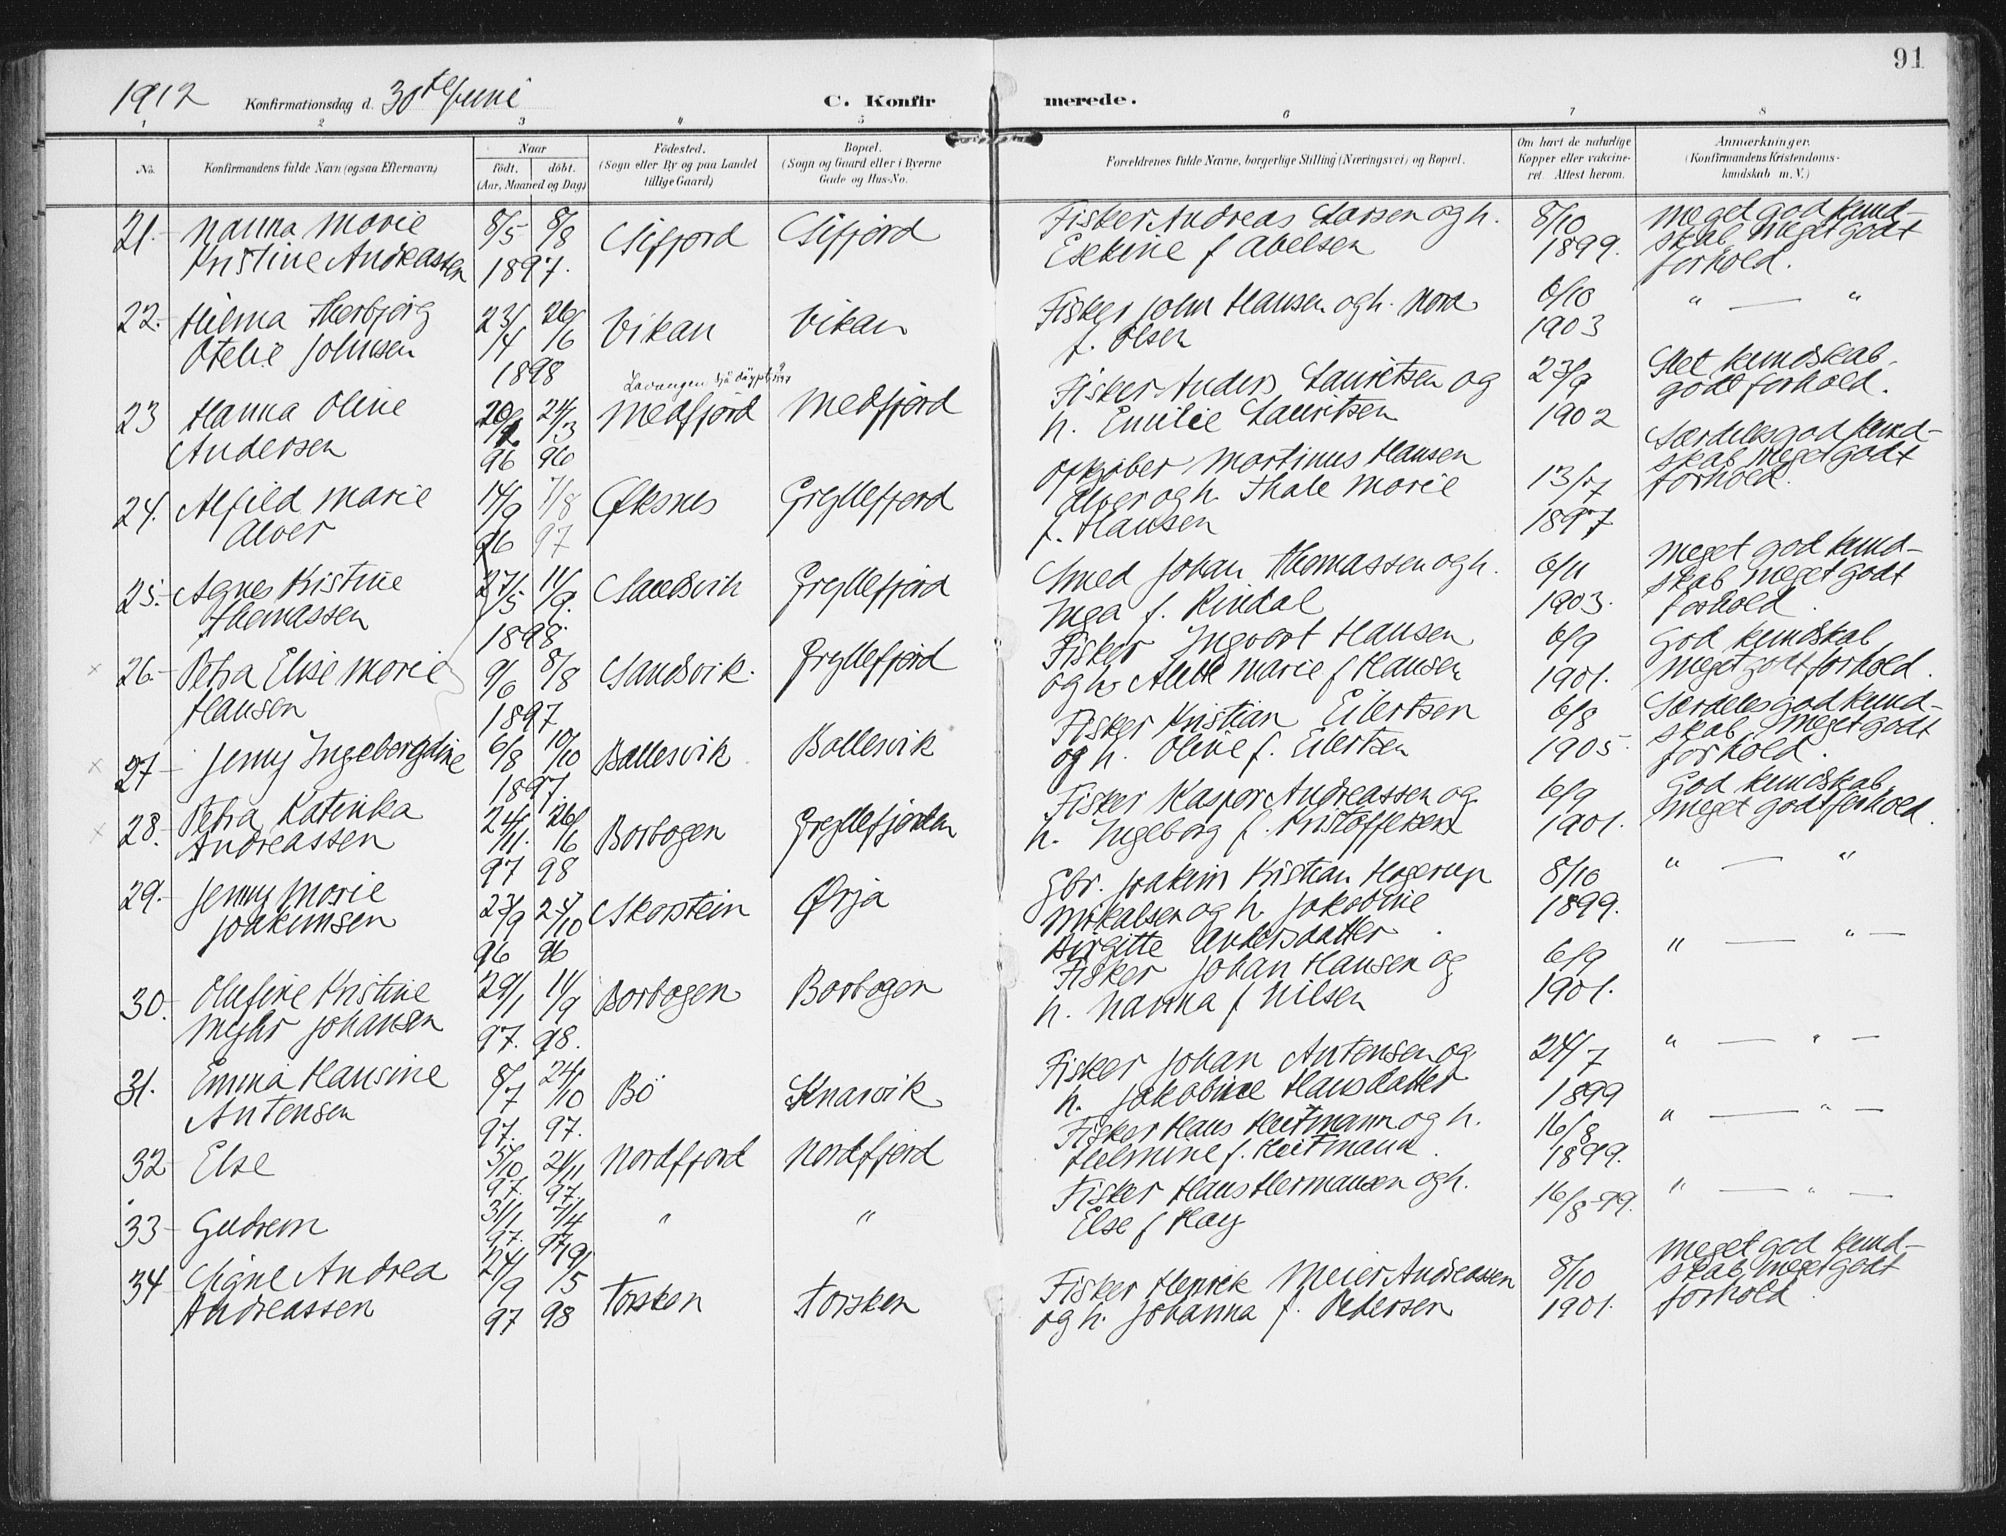 91
1912 Konfirmationsdag d. 30te Juni C. Konfirmerede.
1 2 3 4 5 6 7 8
No. Konfirmandens fulde Navn (ogsaa Efternavn) Naar Födt. döbt. (Aar, Maaned og Dag) Födested. (Sogn eller By og paa Landet tillige Gaard) Bopæl. (Sogn og Gaard eller i Byerne Gade og Hus-No. Forældrenes fulde Navne, borgerlige Stilling (Næringsvei) og Bopæl. Om havt de naturlige Kopper eller vakcineret. Attest herom. Anmærkninger. (Konfirmandens Kristendomskundskab m. V.)
21. Nanna Marie 8/5 8/8 Sifjord Sifjord Fisker Andreas Larsen og h. 8/10 Meget god kund-
Kristine Andreassen 1897. Esekine f Abelsen 1899. skab, meget godt
forhold.
22. Hilma Herbjørg 23/4 26/6 Vikan Vikan Fisker John Hansen og h. Nora 6/10 " — "
Otelie Johnsen 1898 f. Olsen 1903
23 Hanna Oline 20/2 24/3 Medfjord Medfjord Fisker Anders Lauritsen og 23/9 Slet kundskab,
Andersen 96 96 h. Emilie Lauritsen 1902 godt forhold.
24. Alfild Marie 14/9 7/8 Øksnes Gryllefjord Opkjøber Martinus Hansen 13/7 Særdeles god kund-
Alver 96 97 Alver og h. Thale Marie 1897 skab, meget godt
f. Hansen forhold.
25. Agnes Kristine 27/5 11/9. Sandvik Gryllefjord Smed Johan Thomassen og h. 6/11 Meget god kund-
Thomassen 1898. Inga f. Rindal 1903. skab, meget godt
forhold.
26. Petra Elise Marie 9/6 8/8 Sandsvik. Gryllefjord Fisker Ingvart Hansen 6/9 God kundskab
Hansen 1897 og h. Marie f Hansen 1901. meget godt forhold.
27 Jenny Ingeborgdine 6/8 10/10 Ballesvik Ballesvik Fisker Kristian Eilertsen 6/8 Særdeles god kund-
1897. og h. Oline f. Eilertsen 1905. skab, meget godt
forhold.
28. Petra Katinka 24/11. 26/6 Borbogen Gryllefjorden Fisker Kaspar Andreassen og 6/9 God kundskab,
Andreassen 97 98 h. Ingeborg f. Kristoffersen 1901. meget godt forhold.
29. Jenny Marie 23/9 25/10 Skorstein Ørja Gbr. Joakim Kristian Hagerup 8/10 " — "
Joakimsen 96 96 Mikalsen og h. Jakobine 1899.
Birgitte Andersdatter
30. Olufine Kristine 29/1 11/9 Borbogen Borbogen Fisker Johan Hansen og 6/9 " — " —
Myhr Johansen 97. 98. h. Nanna f Nilsen 1901.
31. Emma Hansine 8/7 24/10 Bö Knarvik Fisker Johan Antensen og 24/7 " — " —
Antensen 97. 97. h. Jakobine Hansdatter 1899
32 Else 5/10 21/11 Nordfjord Nordfjord Fisker Hans Heitmann og h. 16/8 " — " —
97. 97. Helmine f. Heitmann 1899.
33 Gudrun 31/1 7/4 " " Fisker Hans Hermansen og h. 16/8-99. " — " —
97. 97 Else f Hay
34 Signe Andrea 24/9 19/5 Torsken Torsken Fisker Henrik Meier Andreassen 8/10 Meget god kund-
Andreassen 97 98 og h. Johanna f. Pedersen 1901. skab, meget godt
forhold.